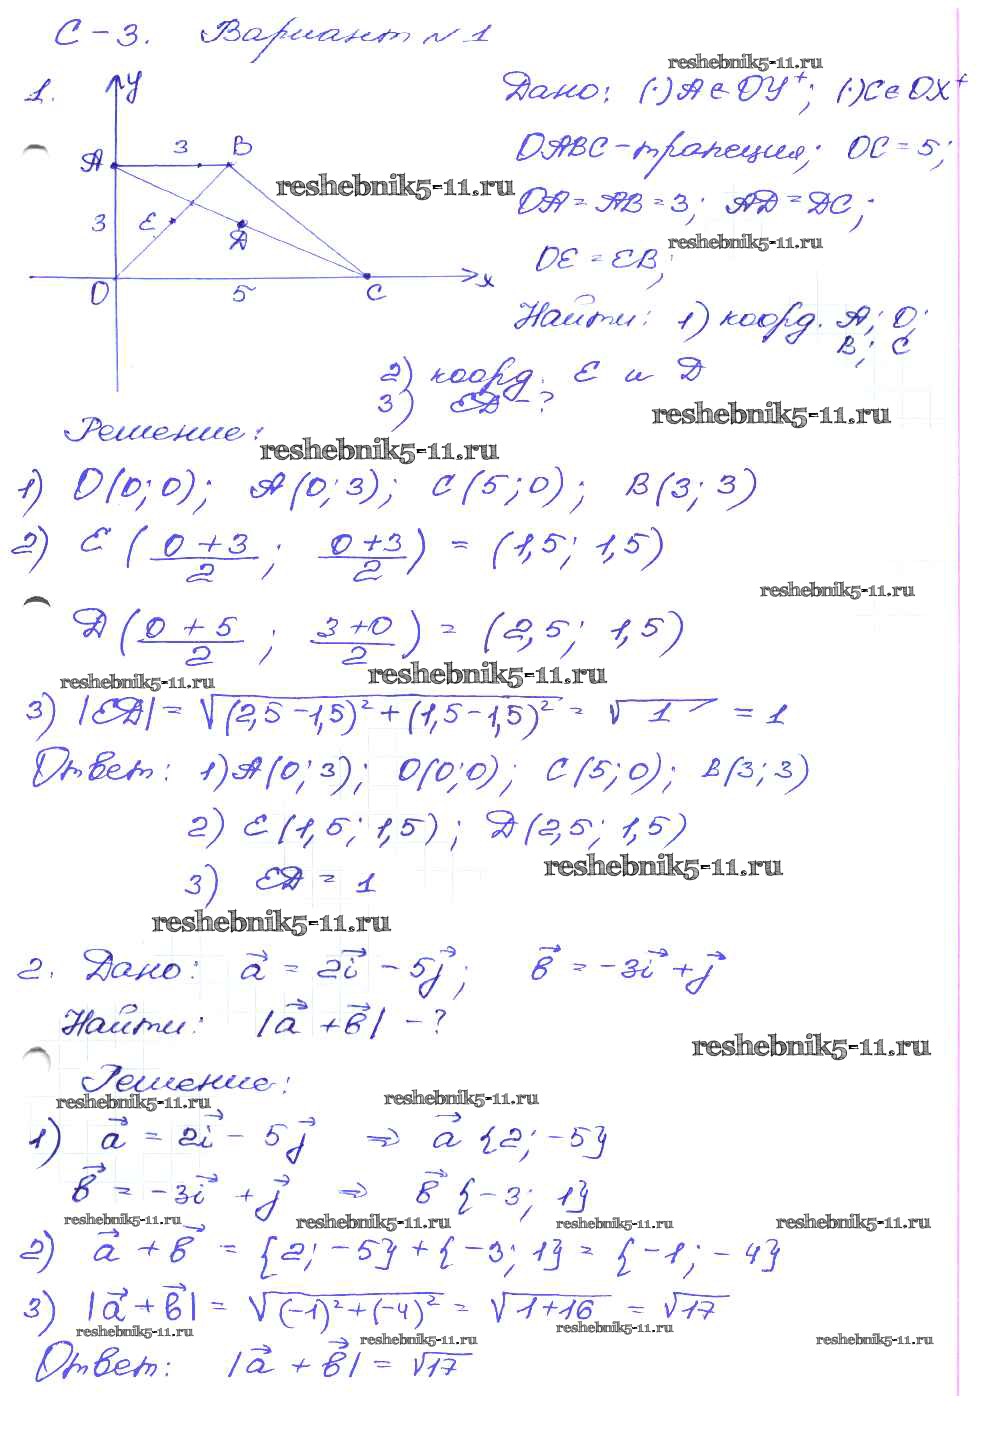 С-3. Вариант №1
reshebnik5-11.ru
1. y Дано: (·)A∈OY⁺; (·)C∈OX⁺
A 3 B OABC - трапеция; OC = 5;
reshebnik5-11.ru
3 E D OA = AB = 3; AD = DC;
reshebnik5-11.ru
OE = EB;
O 5 C x
Найти: 1) коорд. A; O;
B; C
2) коорд. E и D
3) ED - ?
reshebnik5-11.ru
Решение:
reshebnik5-11.ru
1) O(0;0); A(0;3); C(5;0); B(3;3)
2) E((0+3)/2; (0+3)/2) = (1,5; 1,5)
reshebnik5-11.ru
D((0+5)/2; (3+0)/2) = (2,5; 1,5)
reshebnik5-11.ru
reshebnik5-11.ru
3) |ED| = √((2,5-1,5)²+(1,5-1,5)²) = √1 = 1
Ответ: 1) A(0;3); O(0;0); C(5;0); B(3;3)
2) E(1,5; 1,5); D(2,5; 1,5)
reshebnik5-11.ru
3) ED = 1
reshebnik5-11.ru
2. Дано: a⃗ = 2i⃗ - 5j⃗; b⃗ = -3i⃗ + j⃗
Найти: |a⃗ + b⃗| - ?
reshebnik5-11.ru
Решение:
reshebnik5-11.ru reshebnik5-11.ru
1) a⃗ = 2i⃗ - 5j⃗ ⇒ a⃗ {2; -5}
b⃗ = -3i⃗ + j⃗ ⇒ b⃗ {-3; 1}
reshebnik5-11.ru reshebnik5-11.ru reshebnik5-11.ru reshebnik5-11.ru
2) a⃗ + b⃗ = {2; -5} + {-3; 1} = {-1; -4}
3) |a⃗ + b⃗| = √((-1)²+(-4)²) = √(1+16) = √17
reshebnik5-11.ru reshebnik5-11.ru reshebnik5-11.ru reshebnik5-11.ru
Ответ: |a⃗ + b⃗| = √17